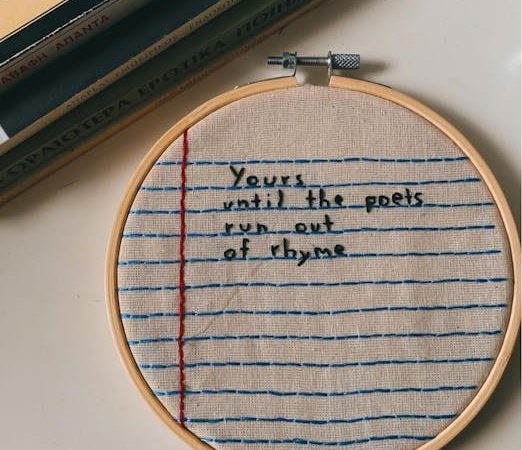 ΑΠΑΝΤΑ
ΩΡΑΙΟΤΕΡΑ ΕΡΩΤΙΚΑ
Yours
until the poets
run out
of rhyme